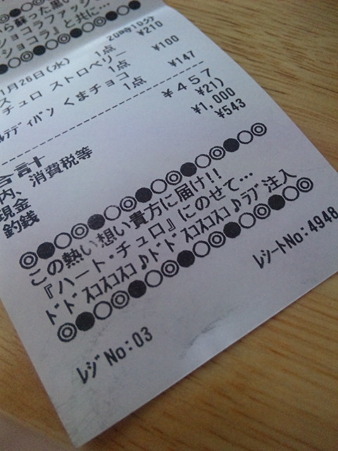 ら蘇った思い
コラフラッフィ
ショコラ』と共に…
●○◎○●○◎○●○◎○●
1月26日(水) 20時10分
1点 ¥210
チュロ ストロベリー
1点 ¥100
ルテディパン くまチョコ
1点 ¥147
合計 ¥457
内、消費税等 ¥21)
現金 ¥1,000
釣銭 ¥543
◎○●○◎○●○◎○●○◎○●○◎
この熱い想い貴方に届け!!
『ハート・チュロ』にのせて…
ドドスコスコスコ♪ドドスコスコスコ♪ラブ注入
◎●○◎○●○◎○●○◎○●○◎
レジNo:03 レシートNo:4948